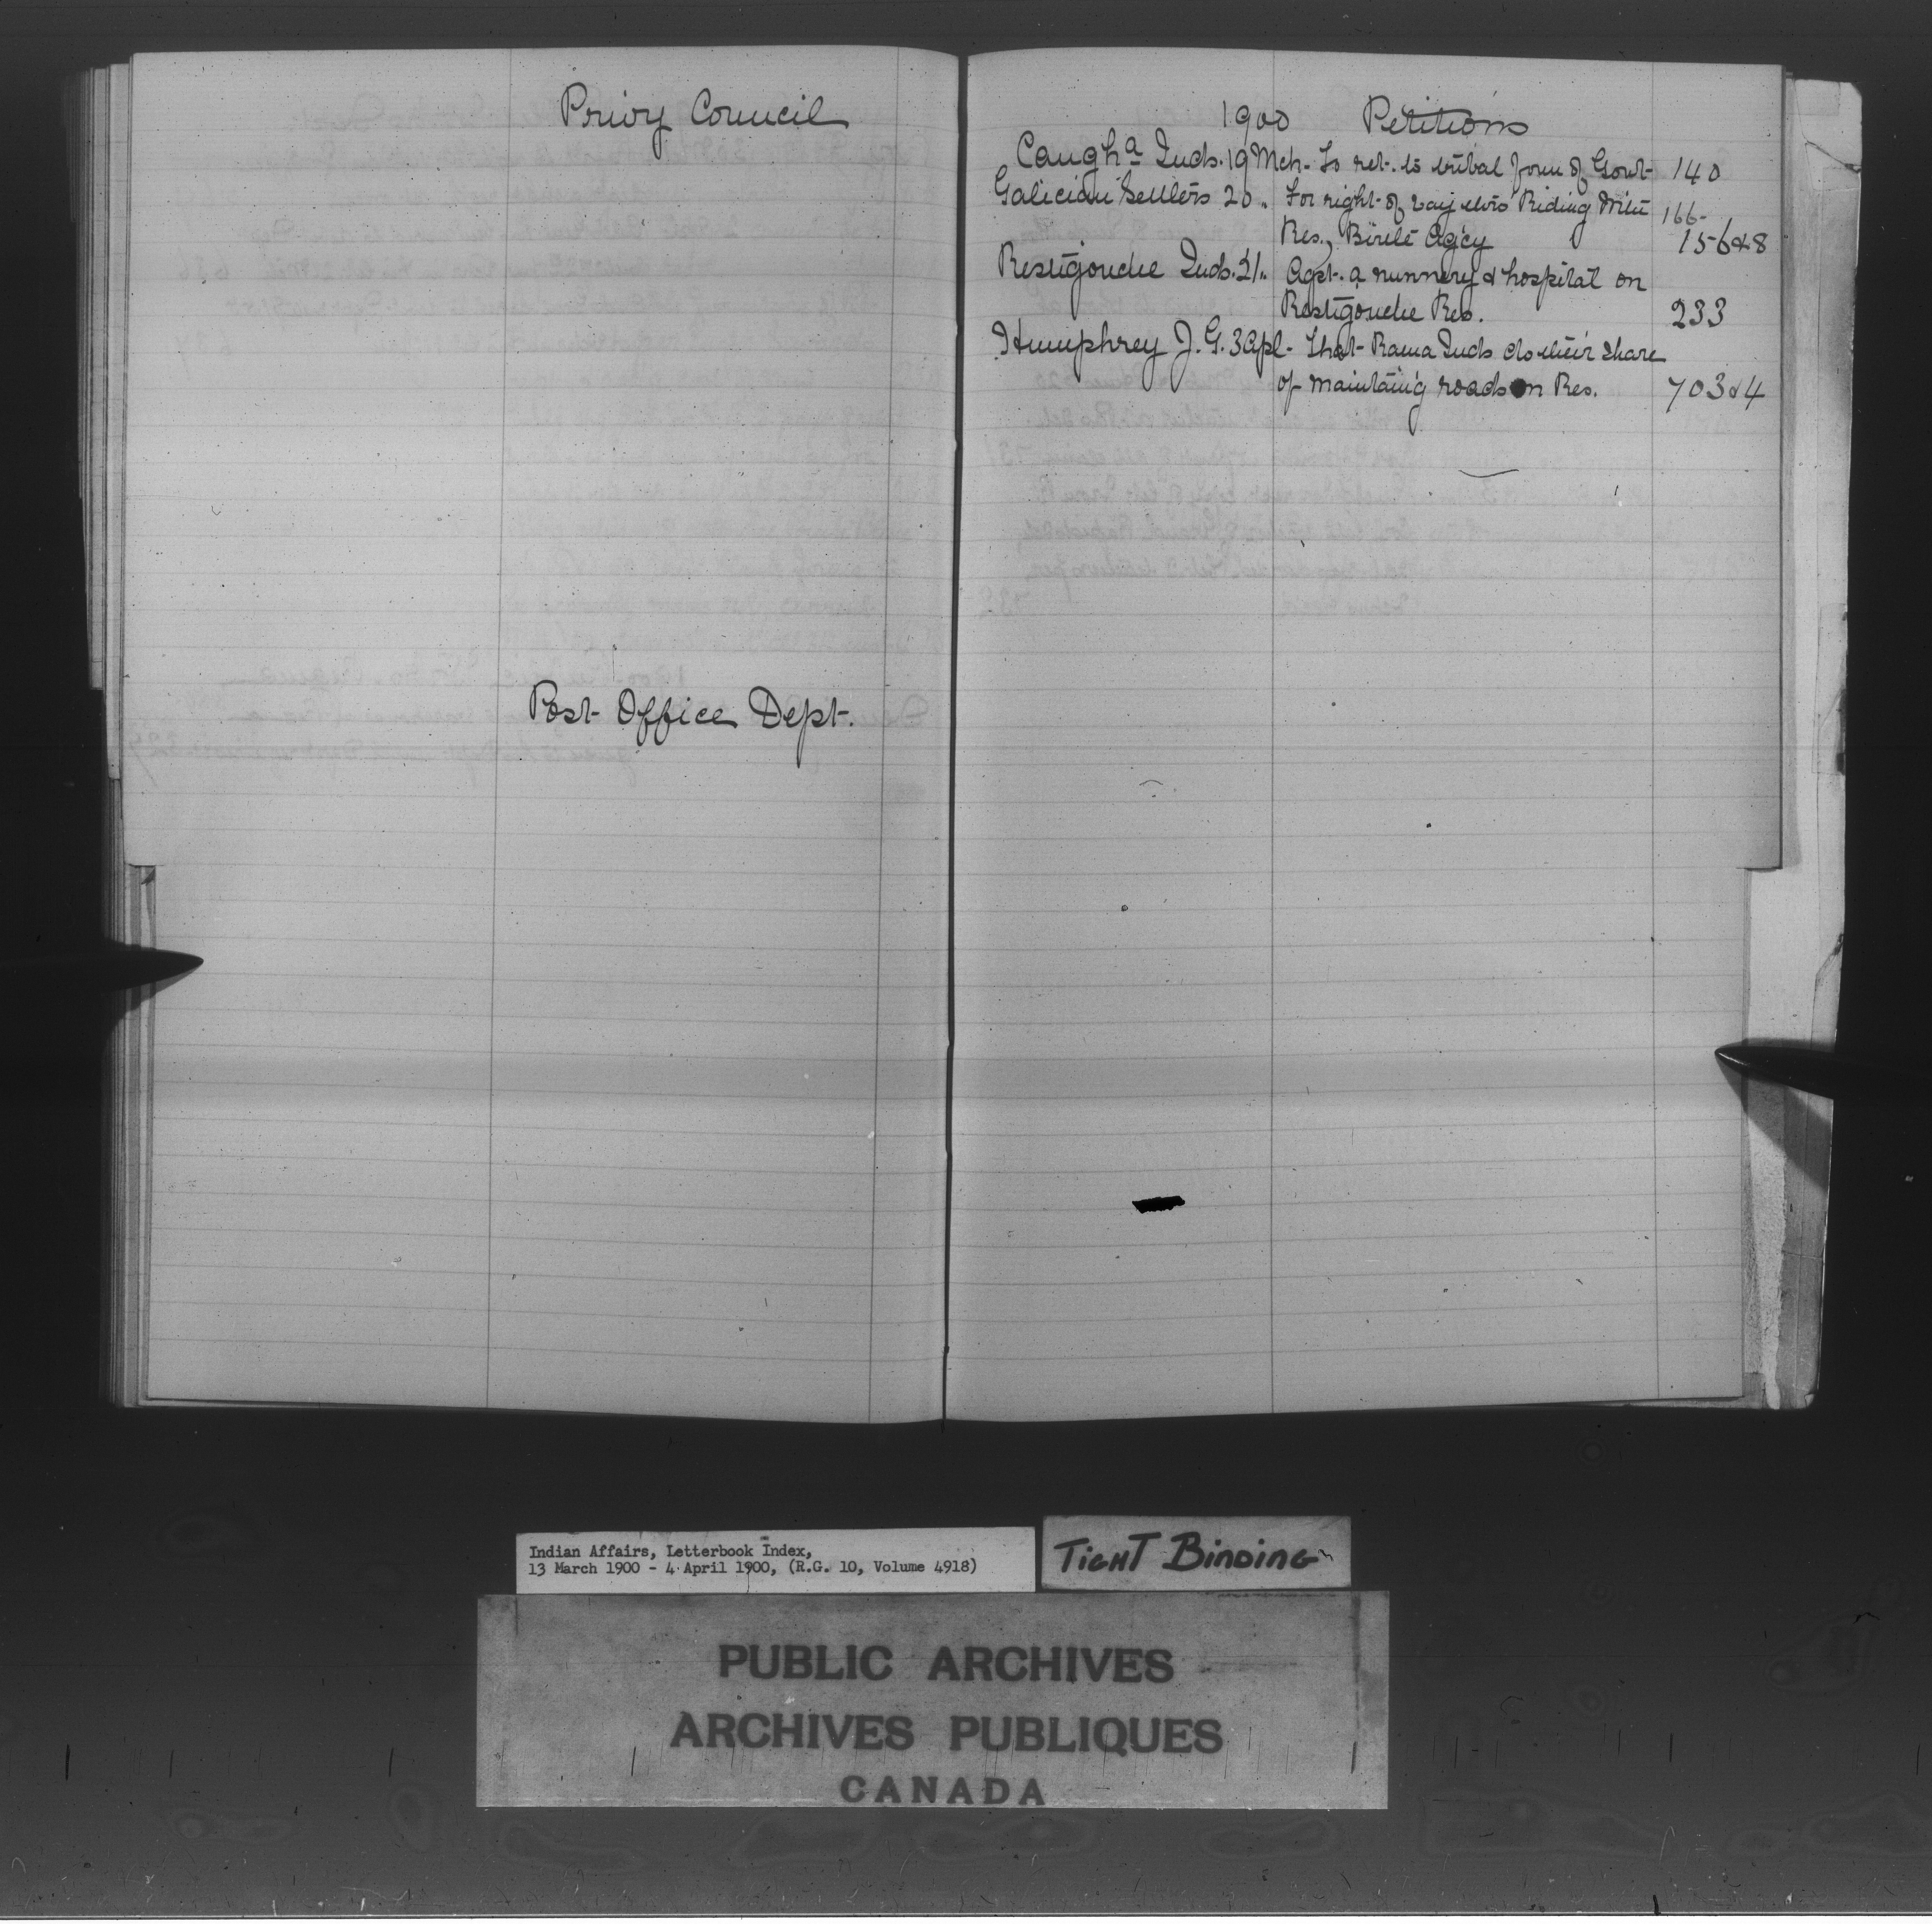 Privy Council
Post Office Dept.
1900 Petitions
Caugha Inds. 19 Mch. To ret. to tribal form of Govt 140
Galician Settlers 20 " For right of way thro' Riding Mtn 166-
Res., Birtle Ag'cy 156&8
Restigouche Inds. 21 " Agst. a nunnery & hospital on
Restigouche Res. 233
Humphrey J. G. 3 Apl - That Rama Inds do their share
of maintain'g roads on Res. 703&4
Indian Affairs, Letterbook Index,
13 March 1900 - 4 April 1900, (R.G. 10, Volume 4918)
TIGHT BINDING
PUBLIC ARCHIVES
ARCHIVES PUBLIQUES
CANADA